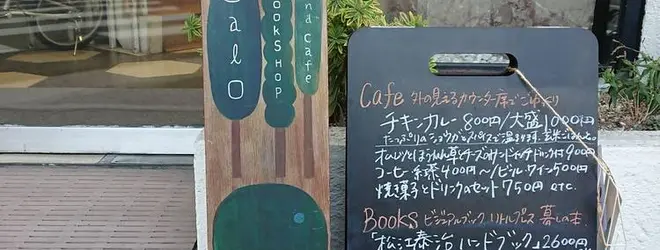 Calo
BOOKSHOP
and Cafe
Cafe 外の見えるカウンター席でごゆっくり
チキンカレー 800円/大盛1000円
たっぷりのショウガとスパイスで温まります。玄米ごはんで。
オムレツとほうれん草とチーズのサンドイッチ ドリンク付900円
コーヒー 紅茶 400円〜/ビール・ワイン500円
焼き菓子とドリンクのセット 750円 etc.
Books ビジュアルブック リトルプレス 暮しの本
「松江泰治 ハンドブック」2600円